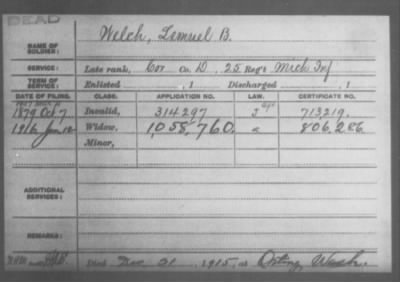 DEAD
NAME OF SOLDIER: Welch, Lemuel B.
SERVICE: Late rank, Cor Co. D, 25 Reg't Mich Inf
TERM OF SERVICE: Enlisted , 1 Discharged , 1
DATE OF FILING. CLASS. APPLICATION NO. LAW. CERTIFICATE NO.
1879 Oct 7 Invalid, 314297 713219.
1916 Jan 12 Widow, 1,058,760. 806,286.
Minor,
ADDITIONAL SERVICES:
REMARKS:
Died Nov 21, 1915, at Orting, Wash.